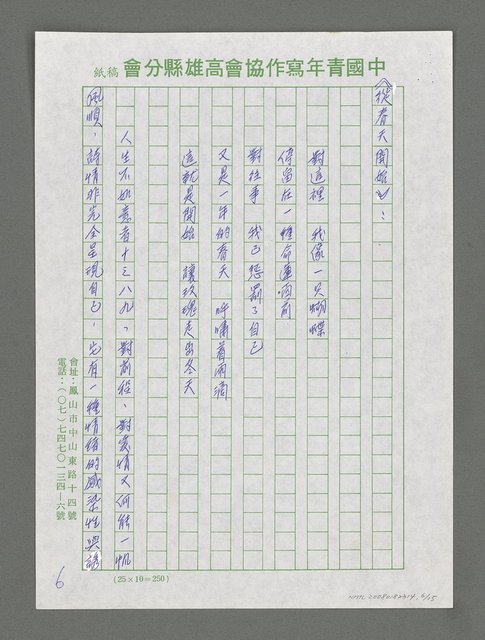 中國青年寫作協會高雄縣分會 稿紙
〈從春天開始〉：
對這裡 我像一只蝴蝶
停留在一種命運面前
對往事 我已懲罰了自己
又是一年的春天 呼嘯着兩滴
這就是開始 讓玫瑰走出冬天
人生不如意者十之八九，對前程、對愛情又何能一帆
風順，詩情非完全呈現自己，它有一種情緒的感染性與諺
會址：鳳山市中山東路十四號
電話：（〇七）七四七〇一三四—六號
(25×10=250)
6
NMTL20080182314, 6/15